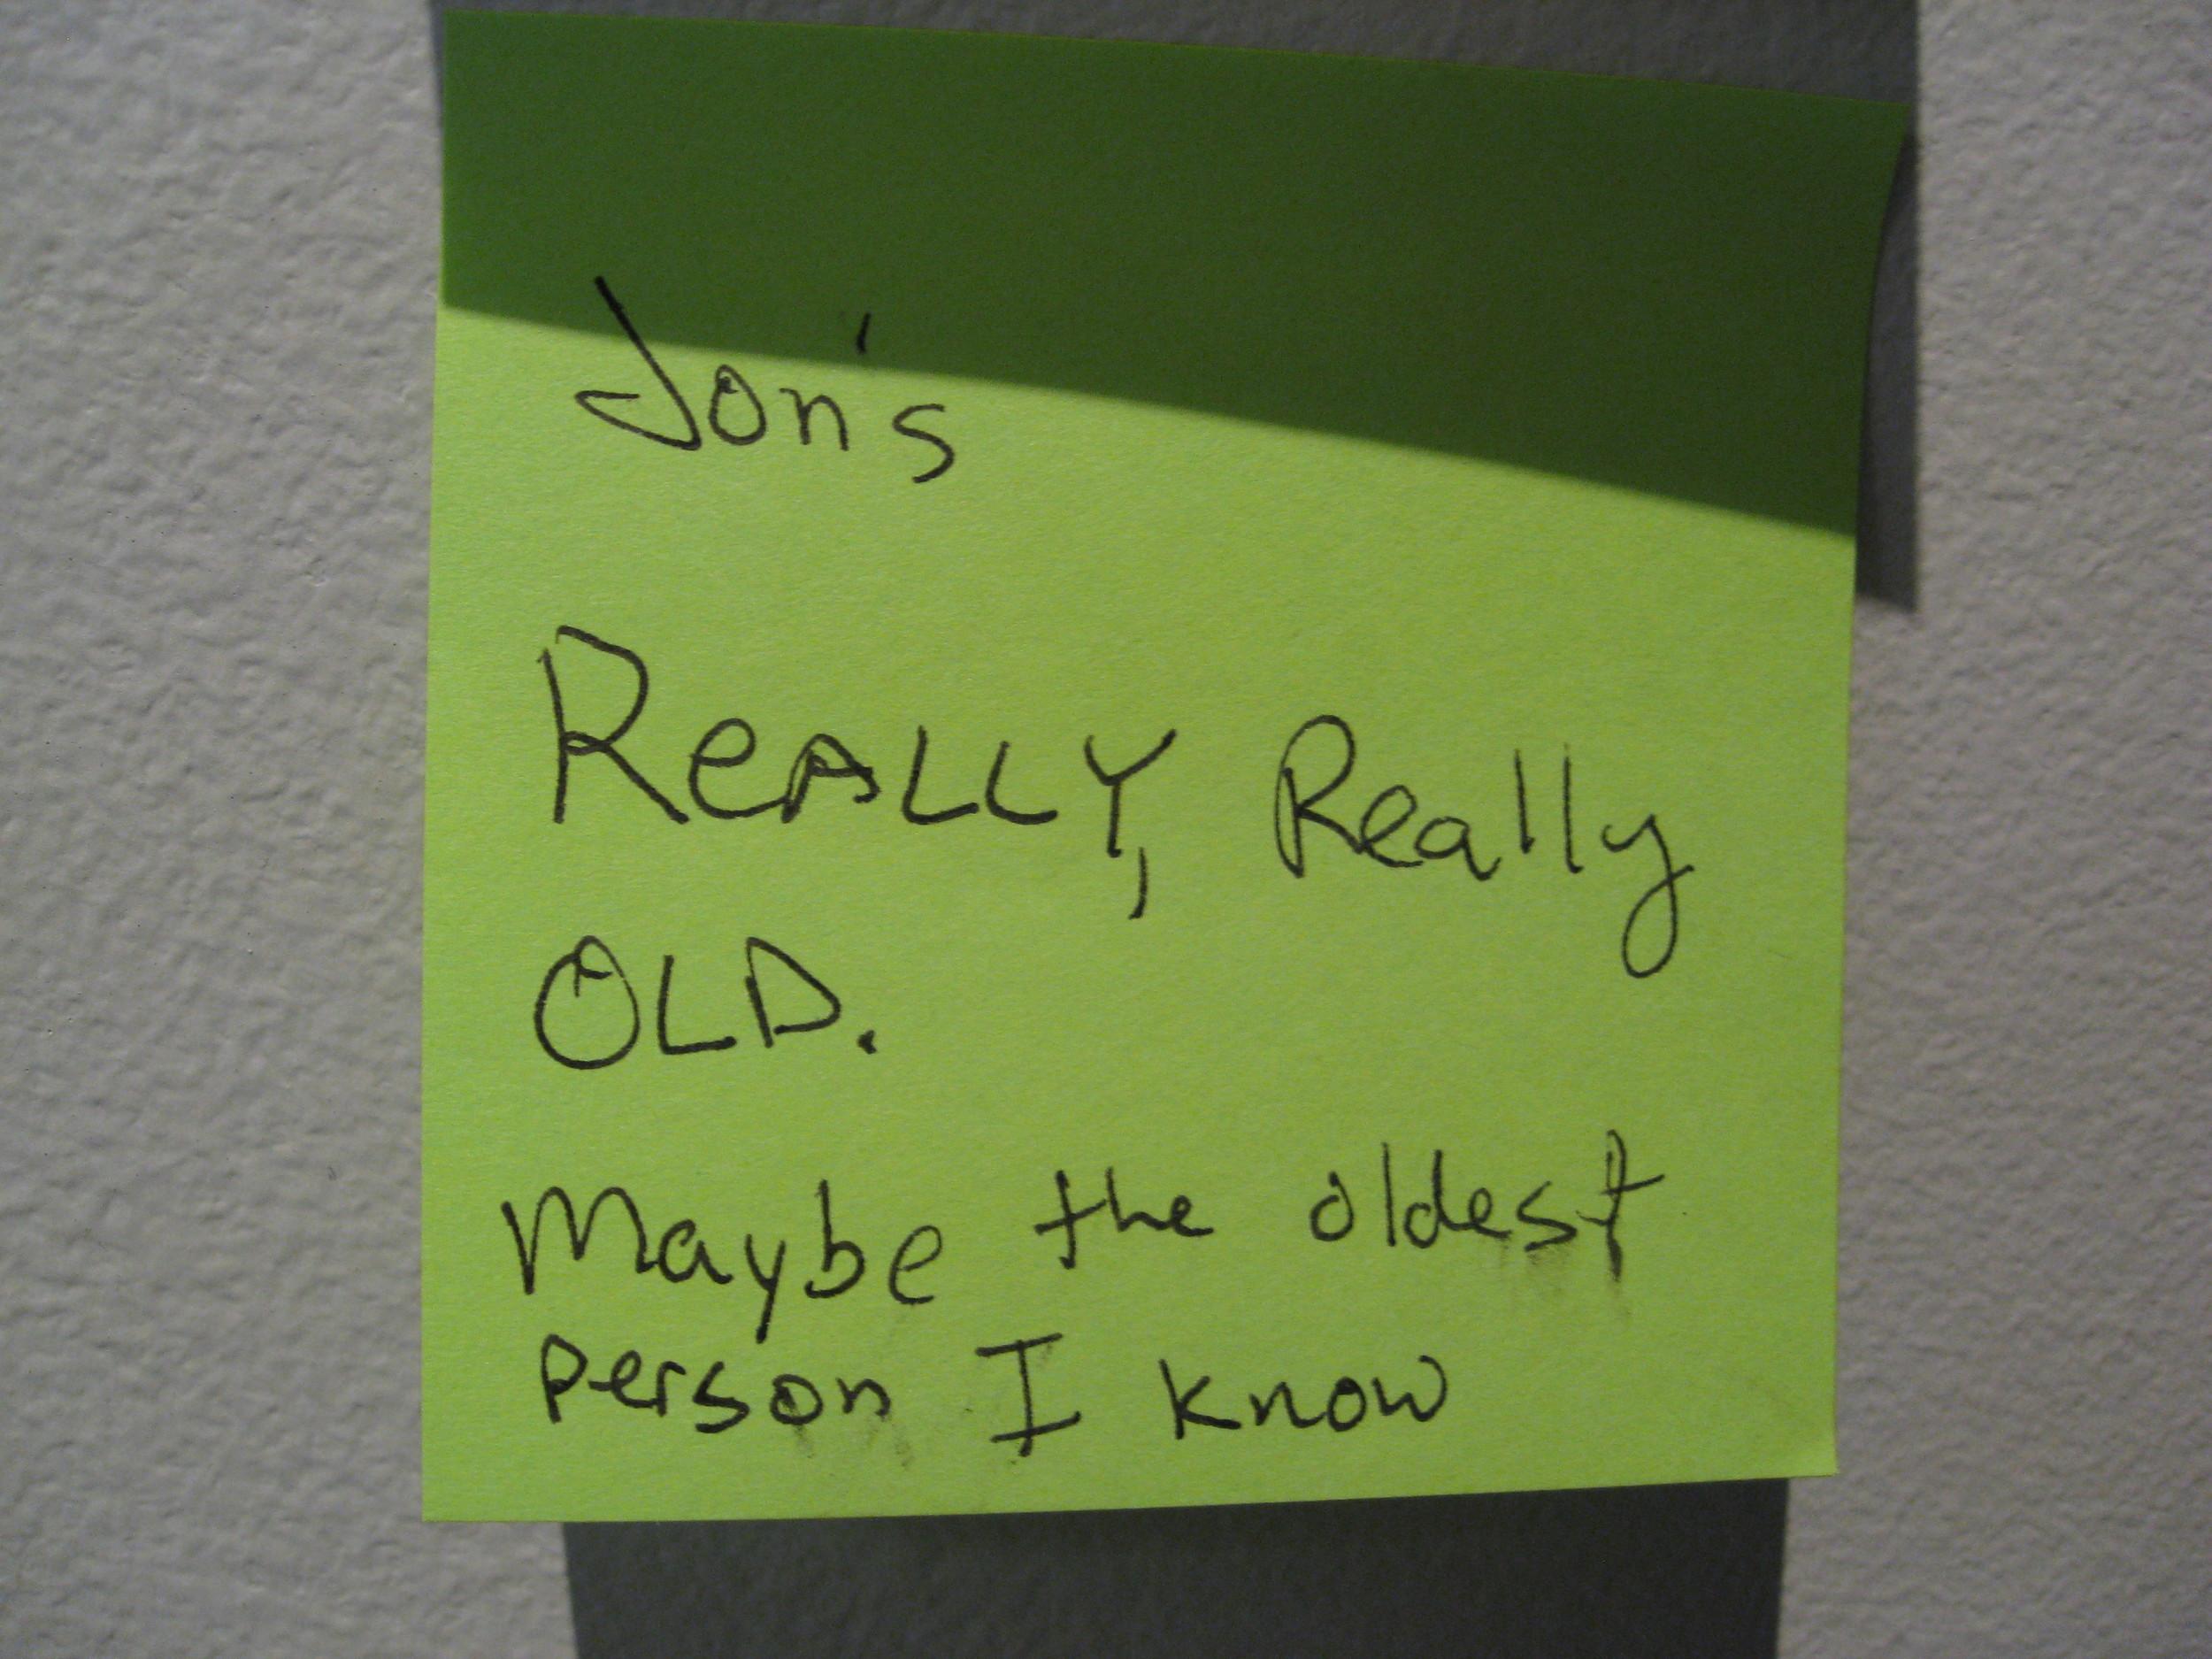 Jon's
ReALLY, Really
OLD.
Maybe the oldest
person I know